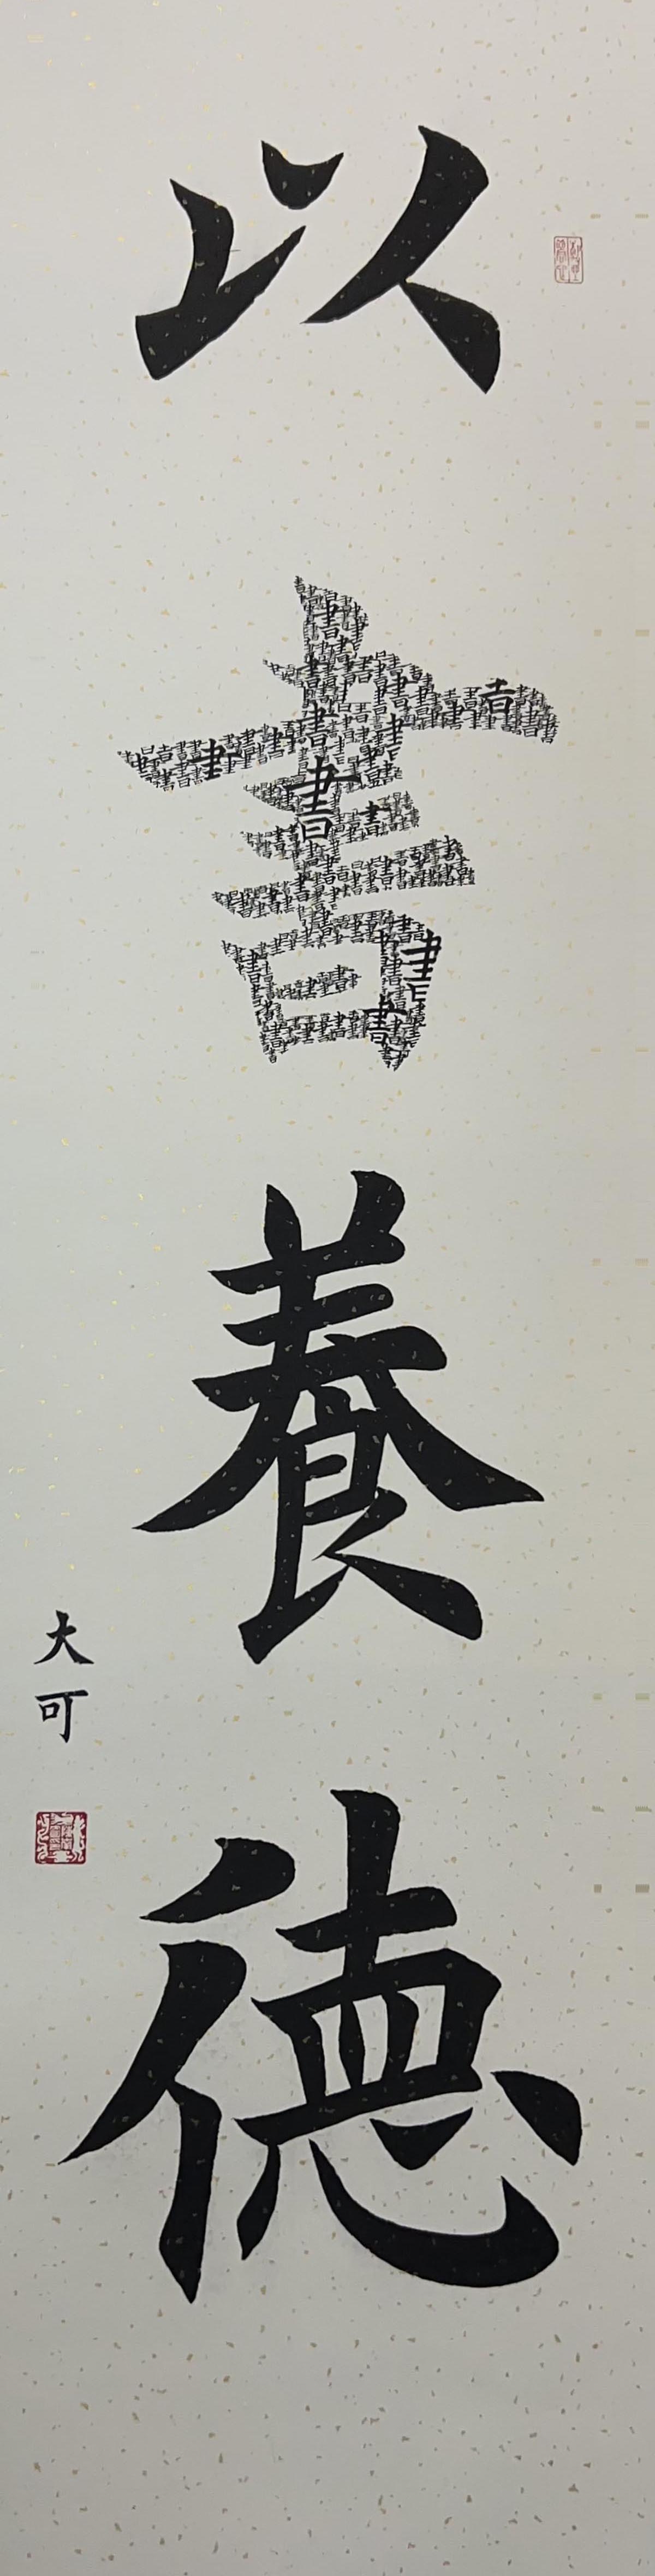 以書養德
大可